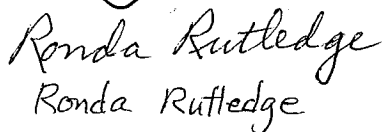 Ronda Rutledge
Ronda Rutledge